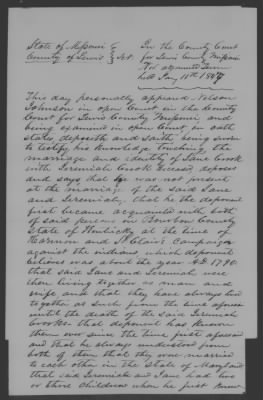 State of Missouri
County of Lewis } Sct.
In the County Court
for Lewis County Missouri
held Jany 11th 1847
This day personally appeared Nelson
Johnson in open Court in the County
Court for Lewis County Missouri, and
being examined in open Court on oath
states deposeth and saith being sworn
to testify his knowledge touching the
marriage and identity of Jane
with Jeremiah deceased, deposeth
and says that he was not present
at the marriage of the said Jane
and Jeremiah, that he the deponent
first became acquainted with both
of said persons in Bourbon County
State of Kentucky at the time of
Harmon and St Clairs Campaign
against the indians which deponent
believes was about the year A.D. 1790.
that said Jane and Jeremiah were
then living together as man and
wife and that they have always lived
together as such from the time aforesaid
until the death of the said Jeremiah
that deponent has known
them ever since the time first aforesaid
and that he always understood from
both of them that they were married
to each other in the State of Maryland
that said Jeremiah and Jane had two
or three Children when he first knew